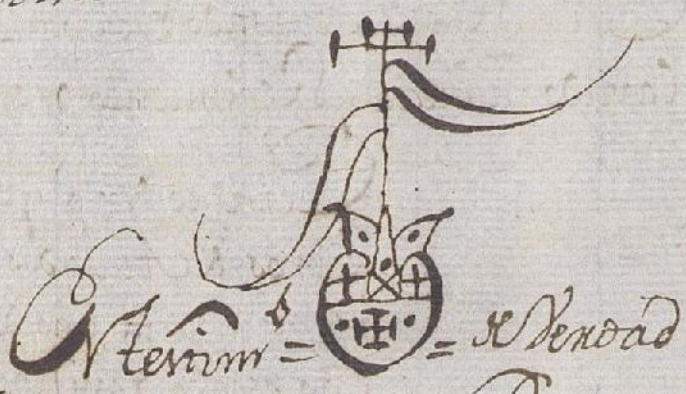 En testim.º = = de Verdad